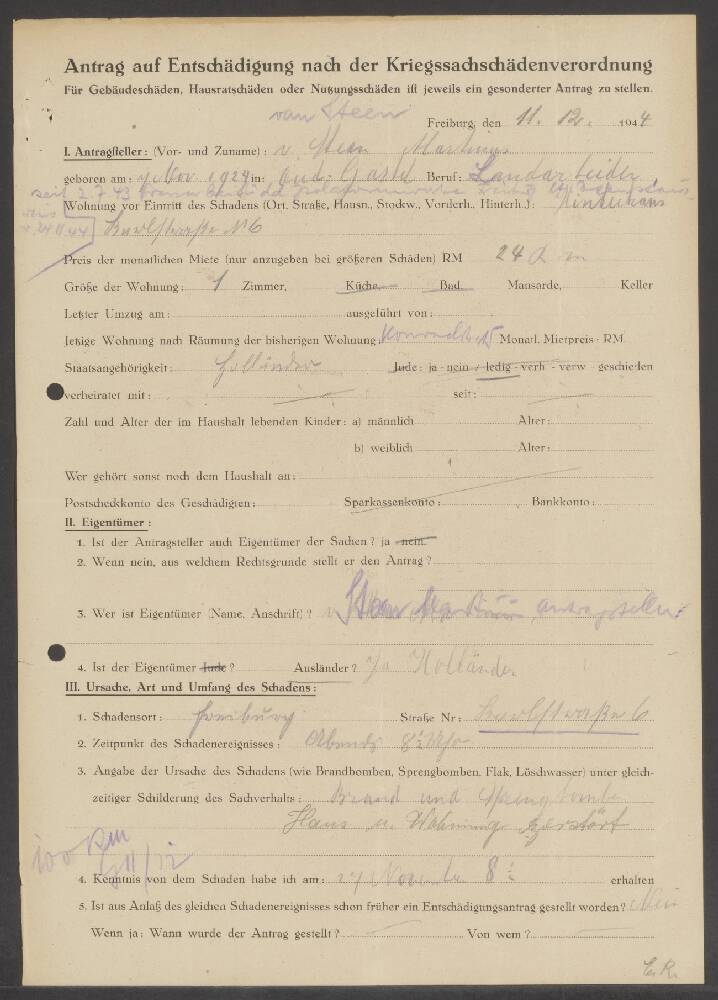 Antrag auf Entschädigung nach der Kriegssachschädenverordnung
Für Gebäudeschäden, Hausratschäden oder Nutzungsschäden ist jeweils ein gesonderter Antrag zu stellen.
van Steen
Freiburg, den 11. 12. 1944
I. Antragsteller: (Vor- und Zuname): v. Steen Martinus
geboren am: 4 Nov. 1924 in: Oud Beruf:
seit 2.7.43
Wohnung vor Eintritt des Schadens (Ort, Straße, Hausn., Stockw., Vorderh., Hinterh.):
24 11 44 Karlstraße N6
Preis der monatlichen Miete (nur anzugeben bei größeren Schäden) RM 24
Größe der Wohnung: 1 Zimmer, Küche, Bad, Mansarde, Keller
Letzter Umzug am: ausgeführt von:
jetzige Wohnung nach Räumung der bisherigen Wohnung Monatl. Mietpreis RM.
Staatsangehörigkeit: Holländer Jude: ja - nein - ledig - verh. - verw - geschieden
verheiratet mit: seit:
Zahl und Alter der im Haushalt lebenden Kinder: a) männlich Alter:
b) weiblich Alter:
Wer gehört sonst noch dem Haushalt an:
Postscheckkonto des Geschädigten: Sparkassenkonto: Bankkonto:
II. Eigentümer:
1. Ist der Antragsteller auch Eigentümer der Sachen? ja nein.
2. Wenn nein, aus welchem Rechtsgrunde stellt er den Antrag?
3. Wer ist Eigentümer (Name, Anschrift)? Steen Martinus Antragsteller
4. Ist der Eigentümer Jude? Ausländer? Ja Holländer
III. Ursache, Art und Umfang des Schadens:
1. Schadensort: Freiburg Straße Nr: Karlstraße 6
2. Zeitpunkt des Schadenereignisses: Abends 8½ Uhr
3. Angabe der Ursache des Schadens (wie Brandbomben, Sprengbomben, Flak, Löschwasser) unter gleich-
zeitiger Schilderung des Sachverhalts: Brand und Sprengbombe
Haus u. Wohnung zerstört
100 RM
4. Kenntnis von dem Schaden habe ich am: 27 November 8½ erhalten
5. Ist aus Anlaß des gleichen Schadenereignisses schon früher ein Entschädigungsantrag gestellt worden? Nein
Wenn ja: Wann wurde der Antrag gestellt? Von wem?